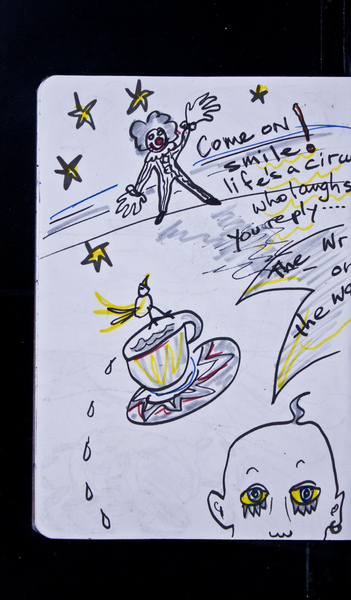 Come on!
smile!
life's a circu
who laughs
You reply....
the Wr
or
the wo